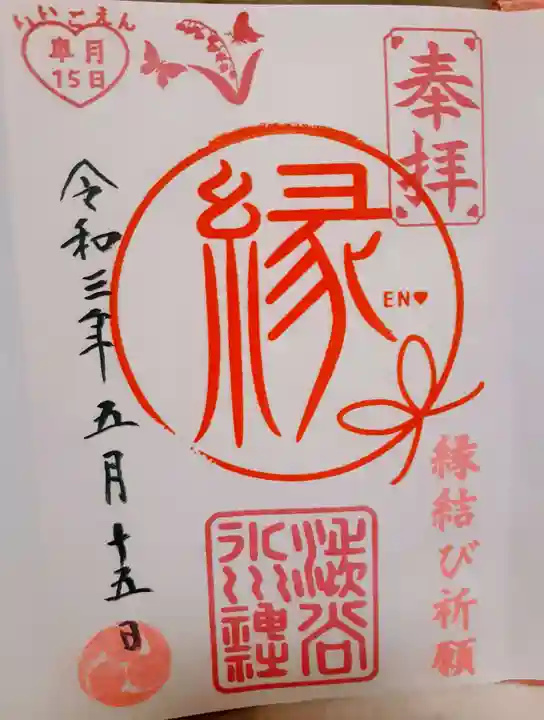 奉拝
縁
EN♥
縁結び祈願
渋谷
氷川
神社
いいごえん
皐月
15日
令和三年五月十五日